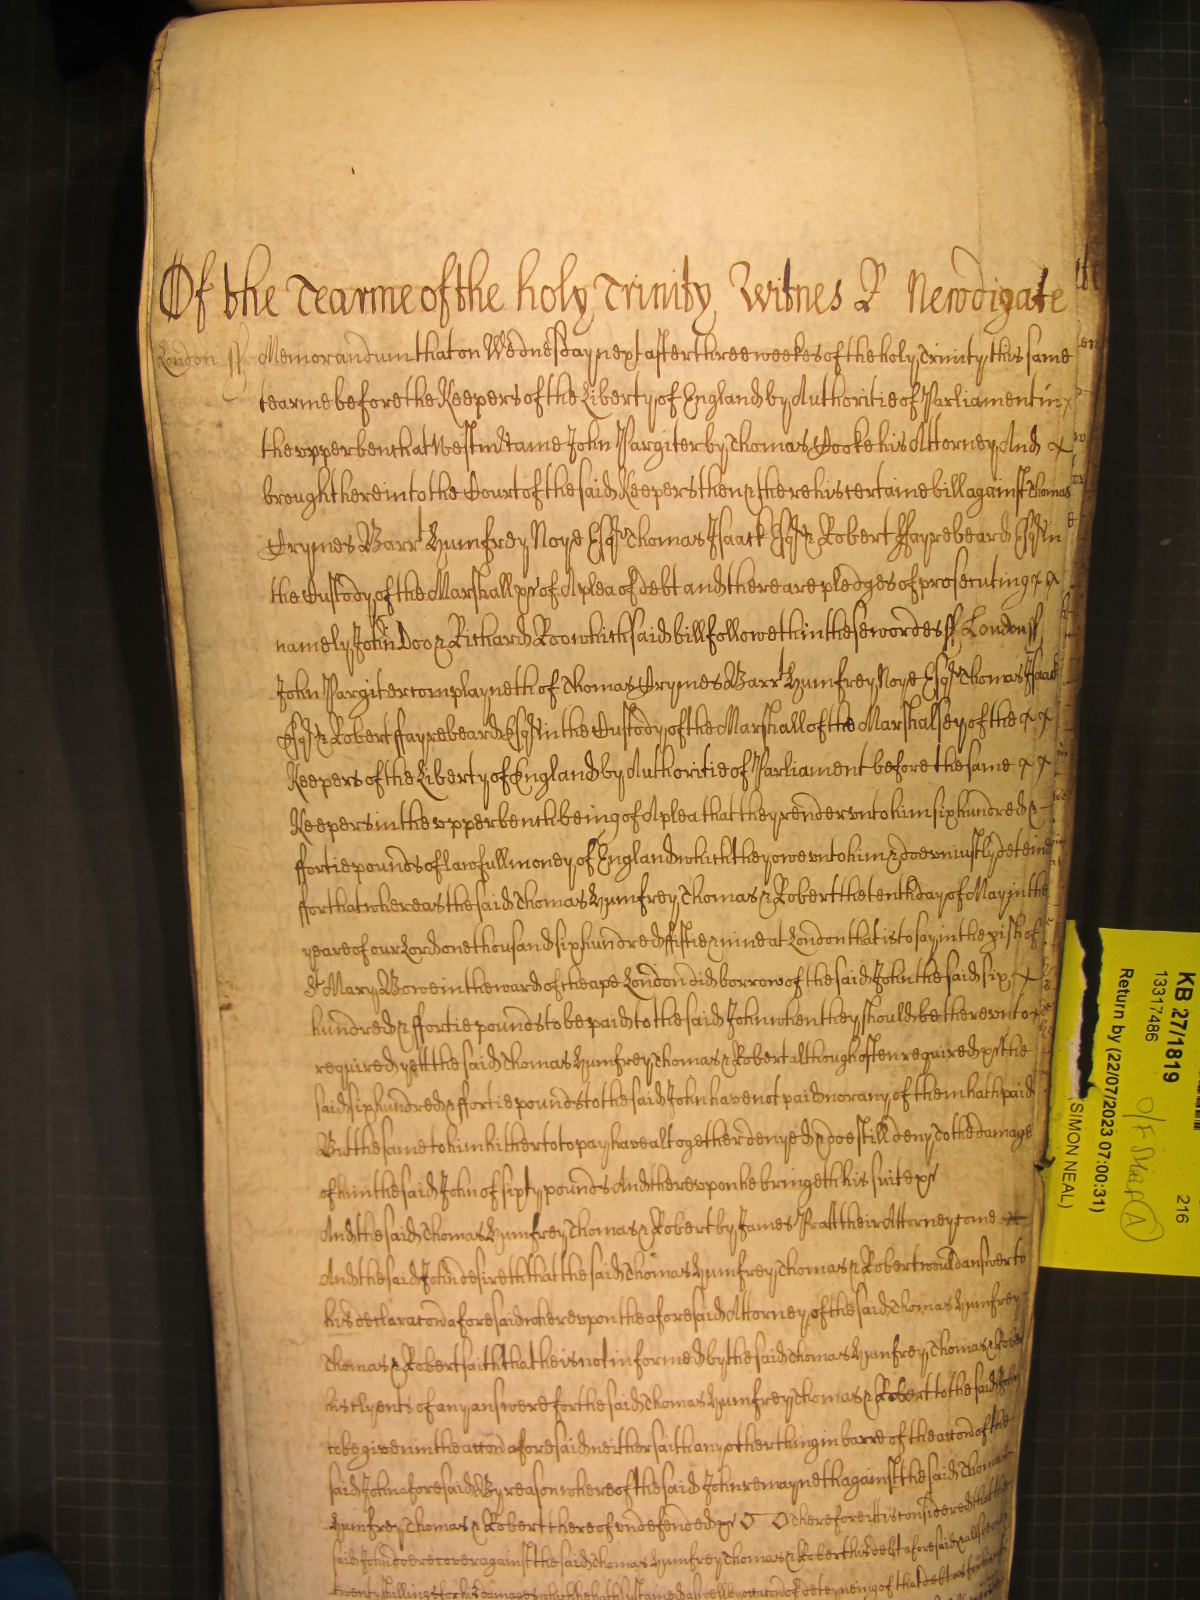 Of the Tearme of the holy Trinity Witnes R Newdigate
London ss Memorandum that on Wednesday next after three weekes of the holy Trinity this same
tearme before the Keepers of the Liberty of England by Authoritie of Parliament in
the upper bench at Westm̃ came John Pargiter by Thomas Cooke his Attorney And
brought here into the Court of the said Keepers then & there his certaine bill against Thomas
Crymes Barrt Humfrey Noye Esqr Thomas Isaack Esqr & Robert ffayrebeard Esqr in
the Custody of the Marshall &c of A plea of debt and there are pledges of prosecuting
namely John Doo & Richard Roo which said bill followeth in these wordes ss London ss
John Pargiter complayneth of Thomas Crymes Barrt Humfrey Noye Esqr Thomas Isaack
Esqr & Robert ffayrebeard Esqr in the Custody of the Marshall of the Marshalsey of the
Keepers of the Liberty of England by Authoritie of Parliament before the same
Keepers in the upper bench being of A plea that they render unto him six hundred &
fortie pounds of lawfull money of England which they owe unto him & doe uniustly deteine
for that whereas the said Thomas Humfrey Thomas & Robert the tenth day of May in the
yeare of our Lord one thousand six hundred fiftie & nine at London that is to say in the pish of
St Mary Bowe in the ward of Cheape London did borrow of the said John the said six
hundred & fortie pounds to be paid to the said John when they should be thereunto
required yett the said Thomas Humfrey Thomas & Robert although often required &c the
said six hundred & fortie pounds to the said John have not paid nor any of them hath paid
But the same to him hitherto to pay have altogether denyed & doe still deny To the damage
of him the said John of sixty pounds And thereupon he bringeth his suite &c
And the said Thomas Humfrey Thomas & Robert by James Pratt their Attorney come
And the said John desireth that the said Thomas Humfrey Thomas & Robert would answer to
his declaracon aforesaid whereupon the aforesaid Attorney of the said Thomas Humfrey
Thomas & Robert saith that he is not informed by the said Thomas Humfrey Thomas & Robert
his clyents of any answere for the said Thomas Humfrey Thomas & Robert to the said John
to be given in the accon aforesaid neither saith any other thing in barre of the accon of the
said John aforesaid By reason whereof the said John remayneth against the said Thomas
Humfrey Thomas & Robert thereof undefended &c Therefore itt is considered that the
said John doe recover against the said Thomas Humfrey Thomas & Robert his debt aforesaid & alsoe
twenty shillings for his damages which he hath susteined aswell by occacon of deteyneing of that debt as for his
KB 27/1819
13317486
216
Return by (22/07/2023 07:00:31)
(SIMON NEAL)